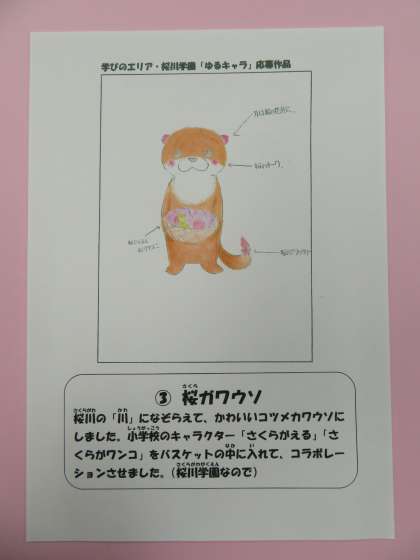 学びのエリア・桜川学園「ゆるキャラ」応募作品
③ 桜ガワウソ
桜川の「川」になぞらえて、かわいいコツメカワウソに
しました。小学校のキャラクター「さくらがえる」「さ
くらがワンコ」をバスケットの中に入れて、コラボレー
ションさせました。（桜川学園なので）